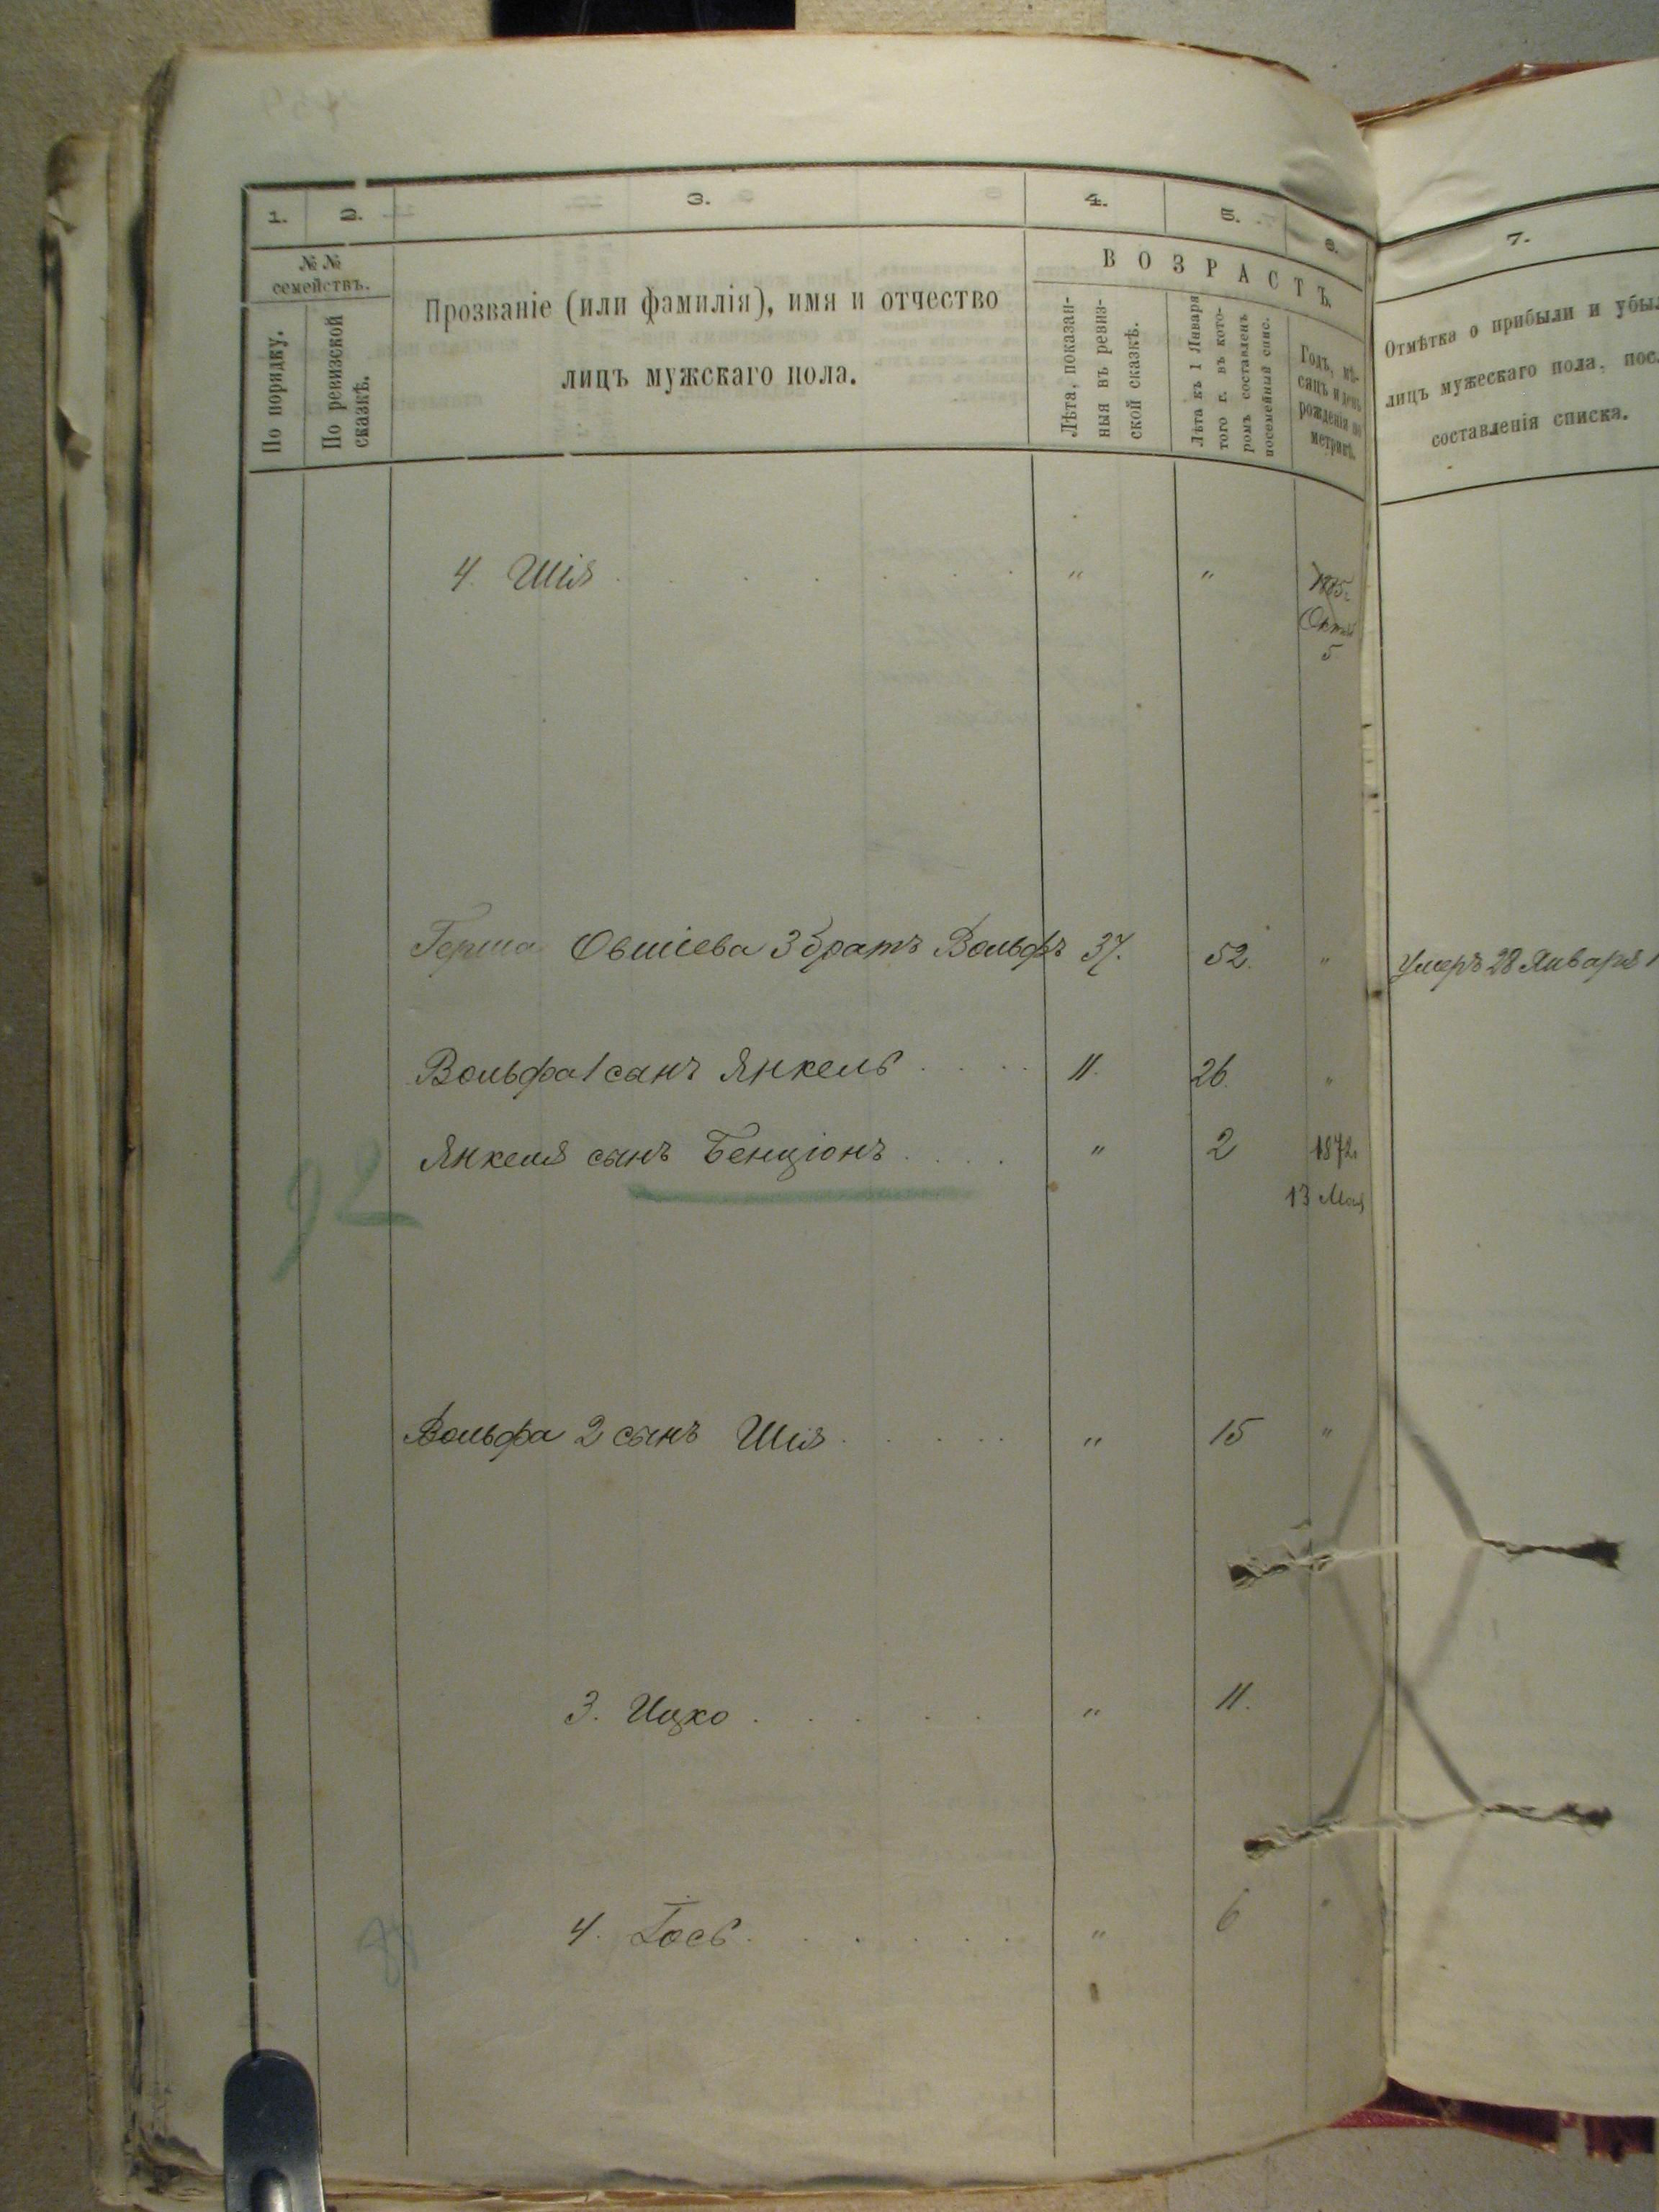 1. 2. 3. 4. 5. 6. 7.
№ №
семействъ.
По порядку.
По ревизской
сказкѣ.
Прозваніе (или фамилія), имя и отчество
лицъ мужскаго пола.
ВОЗРАСТЪ.
Лѣта, показан-
ныя въ ревиз-
ской сказкѣ.
Лѣта къ 1 Января
того г. въ кото-
ромъ составленъ
посемейный спис.
Годъ, мѣ-
сяцъ и день
рожденія по
метрикѣ.
Отмѣтка о прибыли и убыл
лицъ мужескаго пола, пос
составленія списка.
4. Шія . . . . . . " "
5
Герша Овшіева 3 братъ Вольфъ 37. 52. " Умеръ 28 Января 1
Вольфа 1 сынъ Янкель . . . . 11. 26. "
Янкеля сынъ Бенціонъ . . . . " 2 1872
13 Мая
92
Вольфа 2 сынъ Шія . . . . . " 15 "
3. Ицко . . . . . " 11.
4. Іось . . . . . . " 6 "